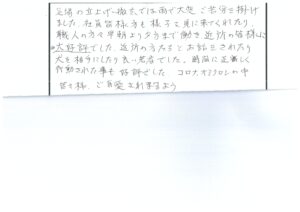 足場の立上げ、撤去では雨で大変ご苦労を掛け
ました。社員皆様方も様子を見に来てくれたり、
職人の方々早朝より夕方まで働き近所の皆様に
大好評でした。近所の方たちとお話をされたり
犬を相手にしたり良い若者でした。時間に正確に
行動された事も好評でした。コロナオミクロンの中
皆々様、ご自愛